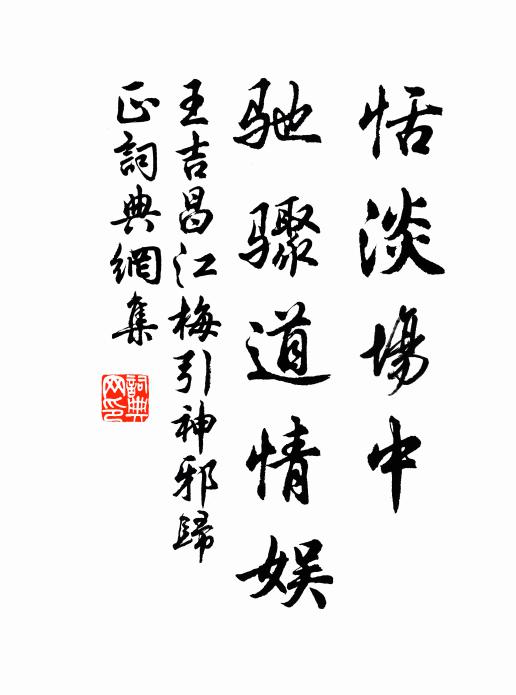 恬淡場中
驰骤道情娱
王吉昌江梅引神邪歸
正詞典網集
詞典网印